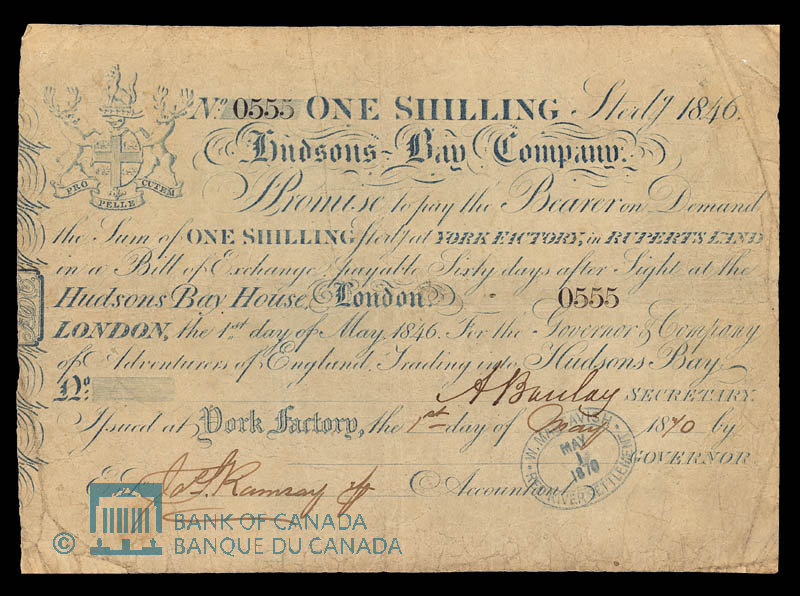 No. 0555 ONE SHILLING Sterlg 1846.
Hudsons-Bay Company.
PRO PELLE CUTEM
Promise to pay the Bearer on Demand
the Sum of ONE SHILLING Sterlg at YORK FACTORY, in RUPERTS LAND
in a Bill of Exchange payable Sixty days after Sight at the
Hudsons Bay House, London. 0555
LONDON, the 1st day of May 1846. For the Governor & Company
of Adventurers of England, Trading into Hudsons Bay
No. A Barclay SECRETARY.
Issued at York Factory, the 1st day of May 1870 by
W. MACTAVISH MAY 1 1870 RED RIVER SETTLEMENT
GOVERNOR
Jas. Ramsay Accountant
© BANK OF CANADA
BANQUE DU CANADA